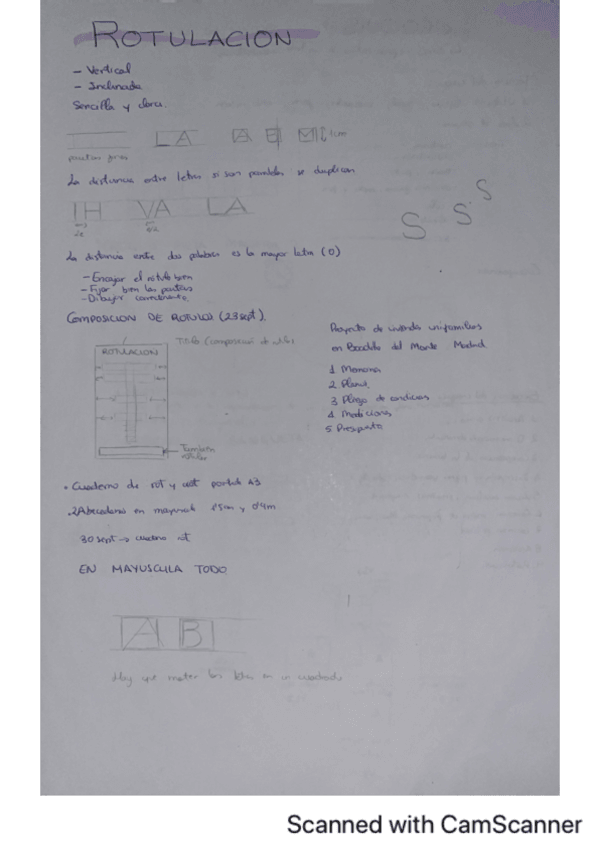 ROTULACION
- Vertical
- Inclinada
Sencilla y clara.
LA A B M 1cm
pautas
La distancia entre letras si son paralelas se duplican
IH VA LA
S S S
La distancia entre dos palabras es la mayor letra (O)
- Encajar el rotulo bien
- Fijar bien las pautas
- Dibujar correctamente
COMPOSICION DE ROTULOS (23 sept).
Titulo (composición de
ROTULACION
También
rotular
Proyecto de vivienda unifamiliar
en Boadilla del Monte Madrid
1 Memoria
2 Planos
3 Pliego de condiciones
4 Mediciones
5 Presupuesto
. Cuaderno de rot y portada A3
. 2 Abecedarios en mayuscula y
30 sept -> cuaderno rot
EN MAYUSCULA TODO
A B
Hay que meter las letras en un cuadrado
Scanned with CamScanner